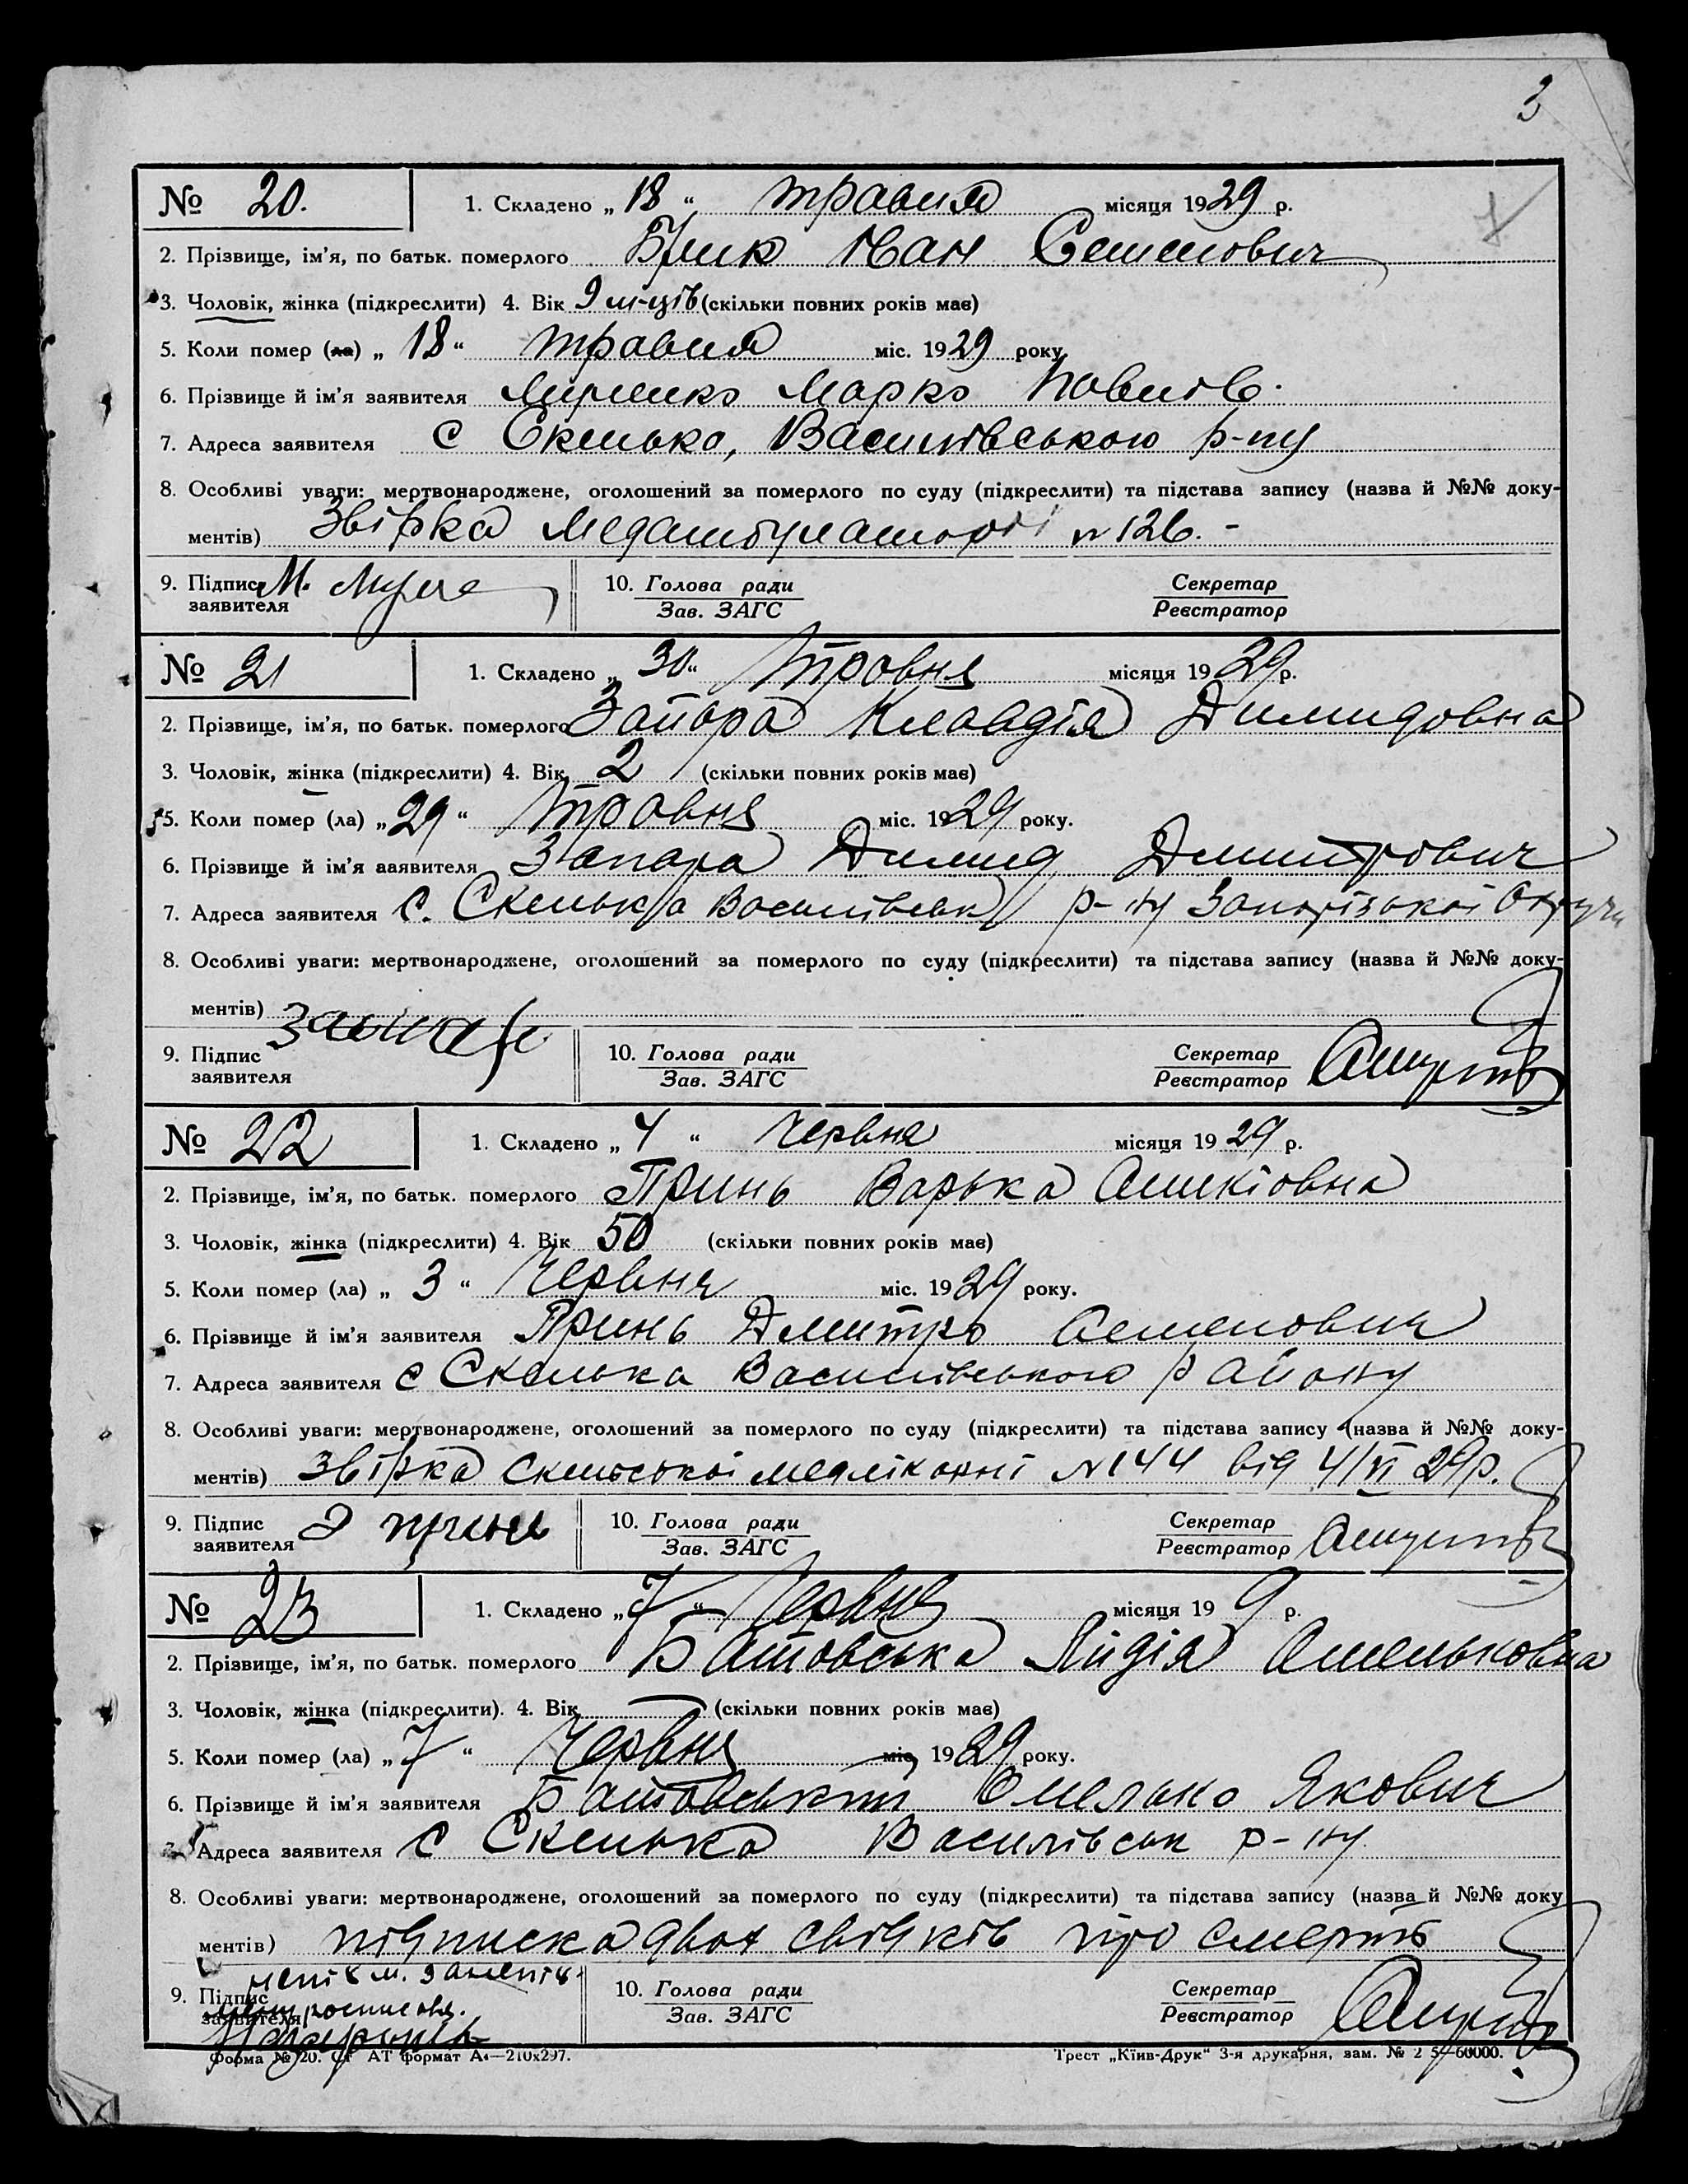 3
№ 20. 1. Складено „ 18 “ травня місяця 1929 р.
2. Прізвище, ім'я, по батьк. померлого Іван Семенович
3. Чоловік, жінка (підкреслити) 4. Вік 9 м-ців (скільки повних років має)
5. Коли помер (ла) „ 18 “ травня міс. 1929 року
6. Прізвище й ім'я заявителя Марко
7. Адреса заявителя с Скелько, Василівського р-ну
8. Особливі уваги: мертвонароджене, оголошений за померлого по суду (підкреслити) та підстава запису (назва й №№ доку-
ментів) Звірка Медамбулаторіі № 126. -
9. Підпис М.
заявителя
10. Голова ради Секретар
Зав. ЗАГС Реєстратор
№ 21 1. Складено „ 30 “ Травня місяця 1929 р.
2. Прізвище, ім'я, по батьк. померлого Запара Клавдія Димидовна
3. Чоловік, жінка (підкреслити) 4. Вік 2 (скільки повних років має)
5. Коли помер (ла) „ 29 “ Травня міс. 1929 року.
6. Прізвище й ім'я заявителя Запара Димид Дмитрович
7. Адреса заявителя с. Скелька Василівськ р-ну Запорізькоі Округи
8. Особливі уваги: мертвонароджене, оголошений за померлого по суду (підкреслити) та підстава запису (назва й №№ доку-
ментів)
9. Підпис
заявителя
10. Голова ради Секретар
Зав. ЗАГС Реєстратор
№ 22 1. Складено „ 4 “ Червня місяця 1929 р.
2. Прізвище, ім'я, по батьк. померлого Принь Варька
3. Чоловік, жінка (підкреслити) 4. Вік 50 (скільки повних років має)
5. Коли помер (ла) „ 3 “ Червня міс. 1929 року.
6. Прізвище й ім'я заявителя Принь Дмитро Семенович
7. Адреса заявителя с Скелька Василівського району
8. Особливі уваги: мертвонароджене, оголошений за померлого по суду (підкреслити) та підстава запису (назва й №№ доку-
ментів) Звірка Скельської медлікарні № 144 від 4/VI 29р.
9. Підпис Д принь
заявителя
10. Голова ради Секретар
Зав. ЗАГС Реєстратор
№ 23 1. Складено „ 7 “ Червня місяця 19 9 р.
2. Прізвище, ім'я, по батьк. померлого Батовська Лидія Омельковна
3. Чоловік, жінка (підкреслити). 4. Вік — (скільки повних років має)
5. Коли помер (ла) „ 7 “ Червня міс. 1929 року.
6. Прізвище й ім'я заявителя Батовський Омелько Якович
7. Адреса заявителя с Скелька Василівськ р-ну
8. Особливі уваги: мертвонароджене, оголошений за померлого по суду (підкреслити) та підстава запису (назва й №№ доку
ментів) підписка двох свідків про смерть
9. Підпис
заявителя
10. Голова ради Секретар
Зав. ЗАГС Реєстратор
Форма № 20. Ст АТ формат А4—210х297. Трест „Київ-Друк“ 3-я друкарня, зам. № 2 5—60000.